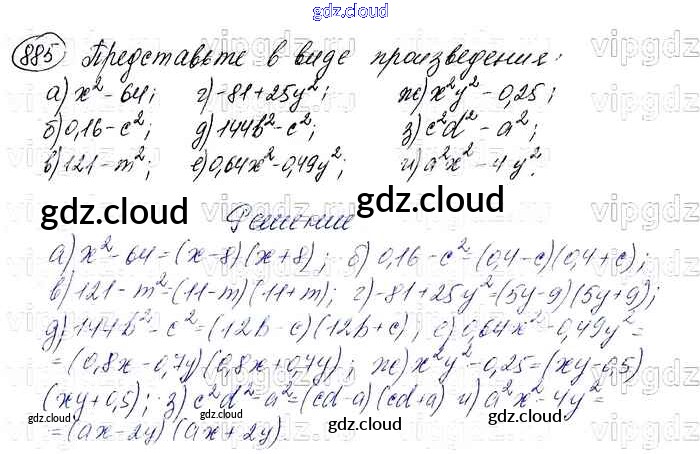 gdz.cloud
885 Представьте в виде произведения:
а) x² - 64; г) -81 + 25y²; ж) x²y² - 0,25;
б) 0,16 - c²; д) 144b² - c²; з) c²d² - a²;
в) 121 - m²; е) 0,64x² - 0,49y²; и) a²x² - 4y².
gdz.cloud gdz.cloud
Решение
а) x² - 64 = (x - 8)(x + 8); б) 0,16 - c² = (0,4 - c)(0,4 + c);
в) 121 - m² = (11 - m)(11 + m); г) -81 + 25y² = (5y - 9)(5y + 9);
д) 144b² - c² = (12b - c)(12b + c); е) 0,64x² - 0,49y² =
= (0,8x - 0,7y)(0,8x + 0,7y); ж) x²y² - 0,25 = (xy - 0,5)
(xy + 0,5); з) c²d² - a² = (cd - a)(cd + a) и) a²x² - 4y² =
gdz.cloud gdz.cloud
= (ax - 2y)(ax + 2y).